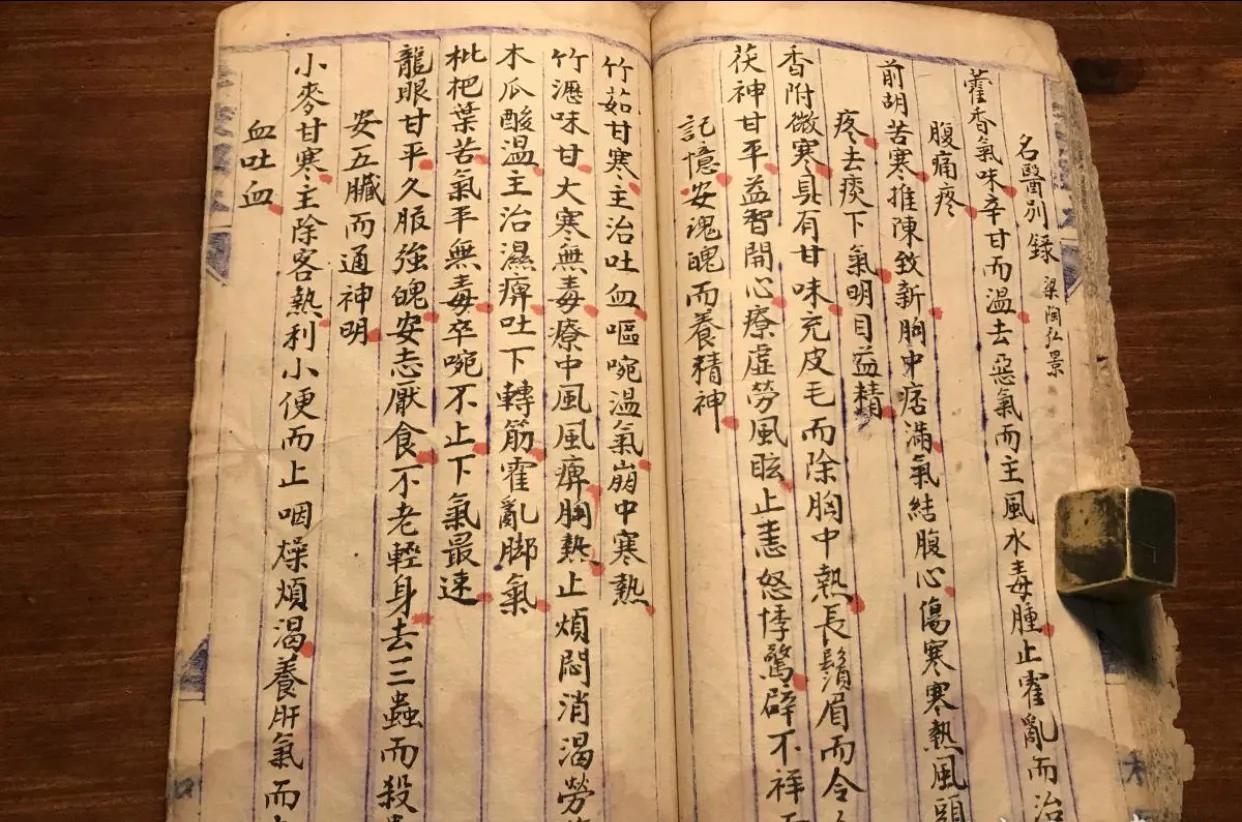 名醫別録 梁陶弘景
藿香氣味辛甘而温去惡氣而主風水毒腫止霍亂而治
腹痛疼
前胡苦寒推陳致新胸中痞滿氣結腹心傷寒寒熱風頭
疼去痰下氣明目益精
香附微寒具有甘味充皮毛而除胸中熱長鬚眉而令
茯神甘平益智開心療虛勞風眩止恚怒悸驚辟不祥
記憶安魂魄而養精神
竹茹甘寒主治吐血嘔啘温氣崩中寒熱
竹瀝味甘大寒無毒療中風風痹胸熱止煩悶消渴勞
木瓜酸温主治濕痹吐下轉筋霍亂脚氣
枇杷葉苦氣平無毒卒啘不止下氣最速
龍眼甘平久服強魄安志厭食不老輕身去三蟲而殺
安五臟而通神明
小麥甘寒主除客熱利小便而止咽燥煩渴養肝氣而
血吐血